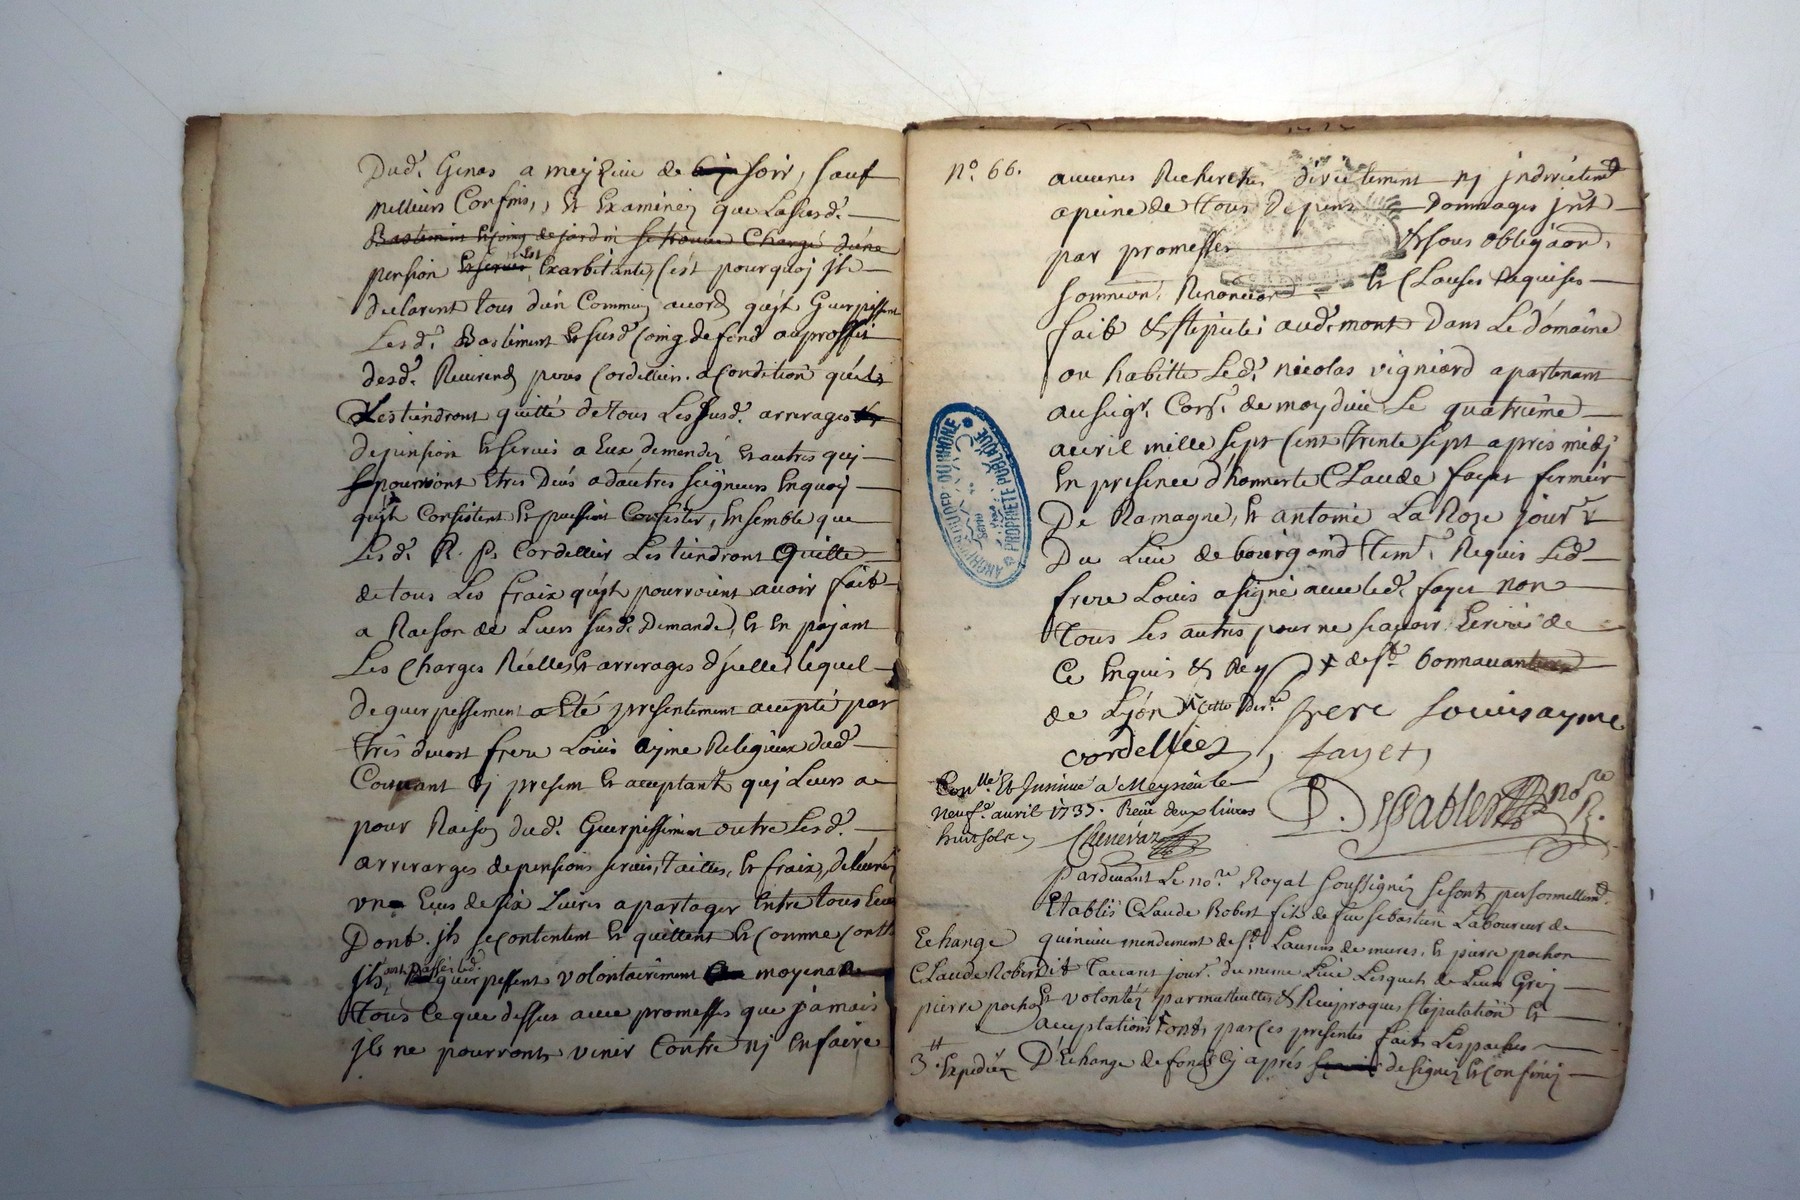 Dud. Genas a meyzieu de soir, sauf
meilleurs Confins, et Examinez que Lasusd.
Bastiment et coing de jardin se trouve Chargé d'une
pension et servis est Exorbitante, C'est pourquoj jls
declarent tous d'un Commun acord qujls Guerpissent
Lesd. Bastiment et susd Coing de fond auproffit
desd. Reverends peres Cordelliers. a Condition qu'ils
Les tiendront quitte de tous Les susd. arrerages
de pension et servis a Eux demendez et autres quj
pourroient Etres Deus a d'autres seigneurs Enquoj
qujls Consistent et puissent Consister, Ensemble que
Lesd. R. P. Cordellier Les tiendront Quitte
de tous Les fraix qujls pourroient avoir fait
a Raison de Leurs susd. Demande, et En pajant
Les Charges Réelles et arrerages d'jcelles lequel
Deguerpissement a Eté presentement accepté par
trés devost frere Louis ayme Religieux dud
Couvant Cj present et acceptant quj Leurs a
pour Raison dud. Guerpissiment outre Lesd.
arrerarges de pensions servis, tailles, et fraix, delivré
un Ecus de six Livres a partager Entre tous Eux
Dont jls se contentent et quittent et Comme Contt
jls ont passé led. guerpissent volontairement moyenant
tous Ce que dessus avec promesses que jamais
jls ne pourront venir Contre nj En faire
No. 66.
aucunes Recherches directement nj jndirectement
apeine de tous Depens Dommages jnt
par promesses et sous obligaon
sommon, Renonciaon et Clauses Requises
fait & stipulé audemont Dans Le domaine
ou habitte Led. nicolas vigniard apartenant
au seigr. Cons. de moydieu Le quatriéme
avril mille sept Cent trente sept apres midj
En presence d'honneste Claude fayet fermier
De Ramagne, et antoine La Roze jour
Du Lieu de bourgoind tem. Requis Led
frere Louis a signé avec led. fayet non
tous Les autres pour ne scavoir Ecrire de
Ce Enquis & Reqs de st bonnavanture
de Lyon
frere Louis ayme
cordellier, fayet,
Conllé Et Insinué à Meyzieu le
neufe. avril 1737. Receu deux livres
huit sols
Chenevaz
nore R.
pardevant Le nore. Royal soussignez se sont personnellemt.
Etablis Claude Robert fils de feu sebastien Laboureur de
quincieu mendement de st Laurens de mures, et pierre pochon
dit tavant jour. du meme Lieu Lesquels de Leurs Grez
et volontéz par mutuelles & Reciproques stipulations et
acceptations font par Ces presentes faits Les paches
D'Echange de fonds Cj aprés designez et Confinez
Echange
Claude Robert
pierre pochon
3 Expediéz
ARCHIVES DU DEP. DU RHONE
PROPRIETE PUBLIQUE